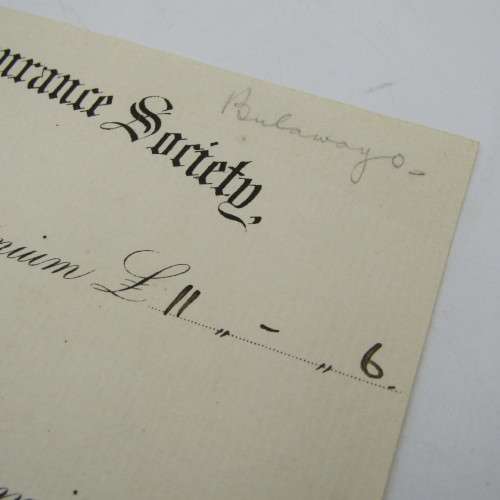 Bulawayo -
urance Society,
mium £ 11 „ - „ 6.